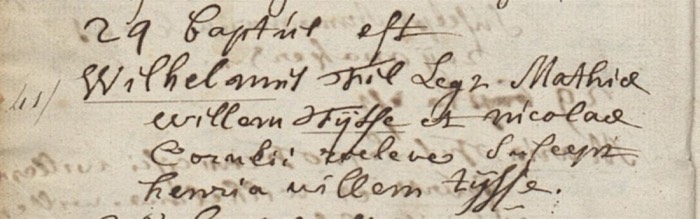 29 Baptus est
41/ Wilhelmus fil Legr. Mathiæ
willem Tijsse et nicolaæ
Cornelii Suscept
henria willem tijsse.